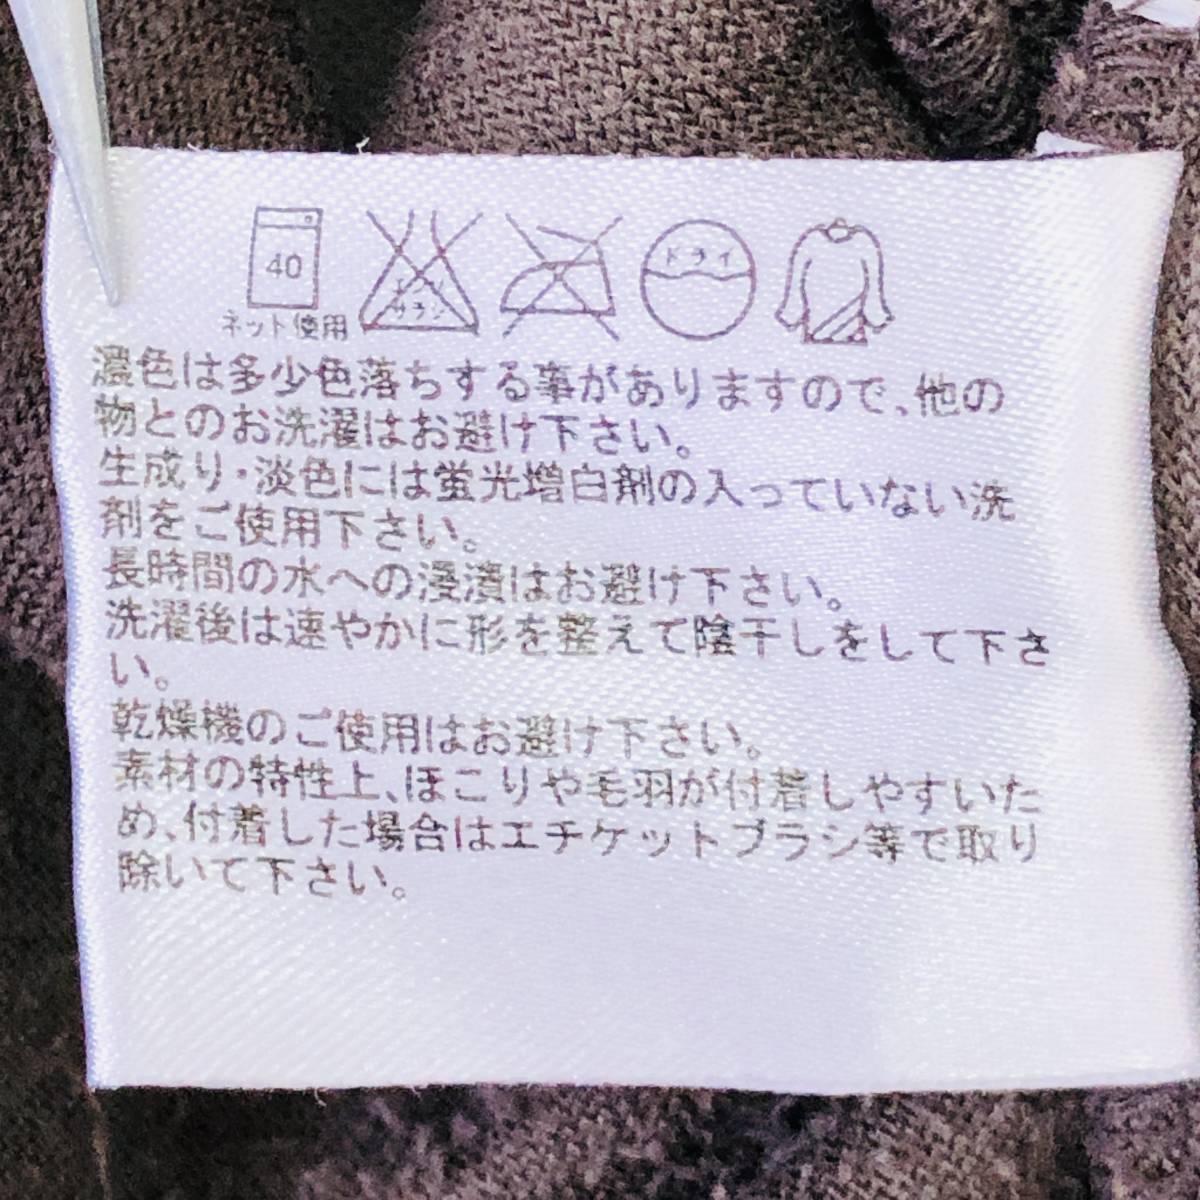 40
ネット使用
エンソ
サラシ
ドライ
濃色は多少色落ちする事がありますので、他の
物とのお洗濯はお避け下さい。
生成り・淡色には蛍光増白剤の入っていない洗
剤をご使用下さい。
長時間の水への浸漬はお避け下さい。
洗濯後は速やかに形を整えて陰干しをして下さ
い。
乾燥機のご使用はお避け下さい。
素材の特性上、ほこりや毛羽が付着しやすいた
め、付着した場合はエチケットブラシ等で取り
除いて下さい。